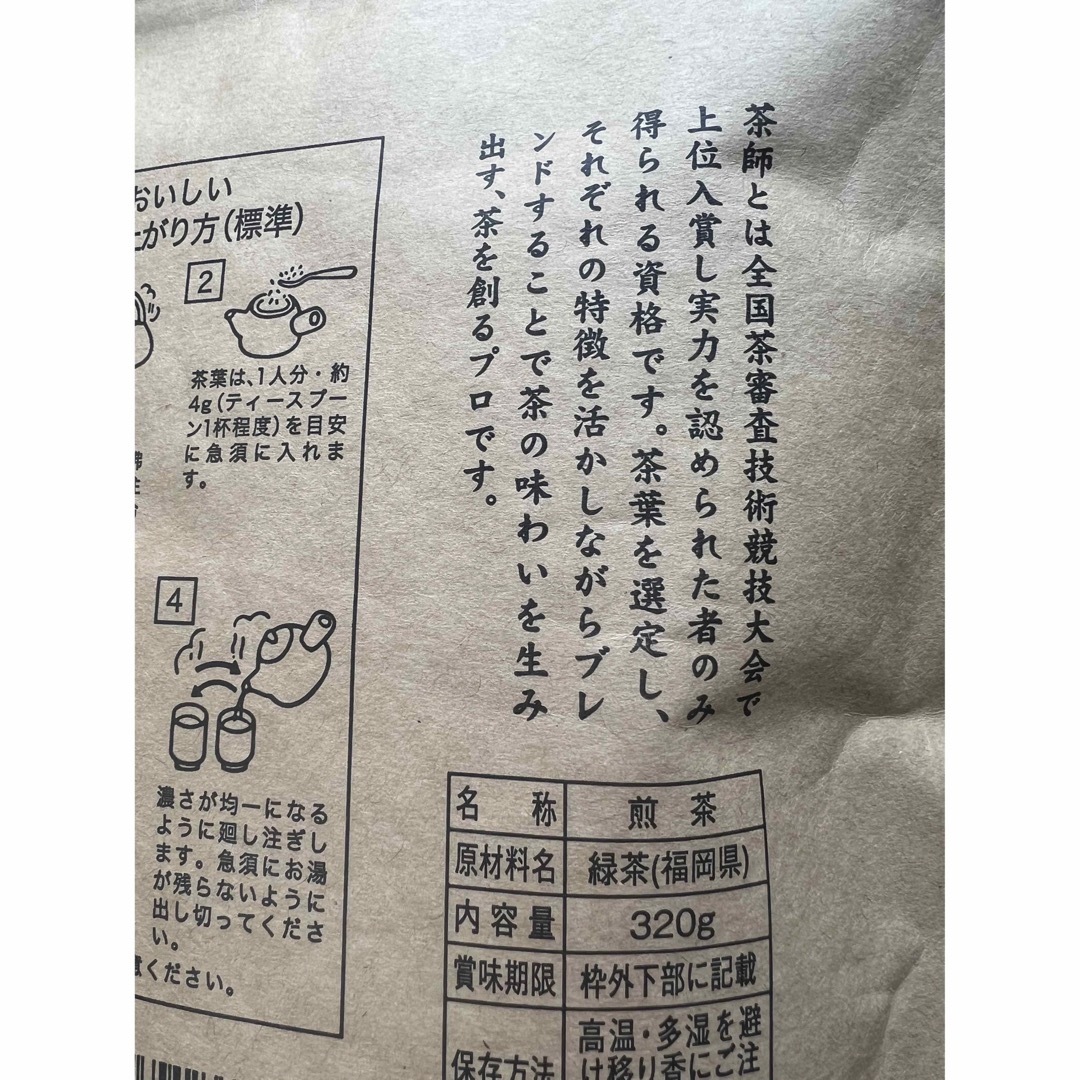 茶師とは全国茶審査技術競技大会で
上位入賞し実力を認められた者のみ
得られる資格です。茶葉を選定し、
それぞれの特徴を活かしながらブレ
ンドすることで茶の味わいを生み
出す、茶を創るプロです。
おいしい
がり方(標準)
2
茶葉は、1人分・約
4g(ティースプー
ン1杯程度)を目安
に急須に入れま
す。
4
濃さが均一になる
ように廻し注ぎし
ます。急須にお湯
が残らないように
出し切ってくださ
い。
ください。
名称 煎茶
原材料名 緑茶(福岡県)
内容量 320g
賞味期限 枠外下部に記載
保存方法 高温・多湿を避
け移り香にご注